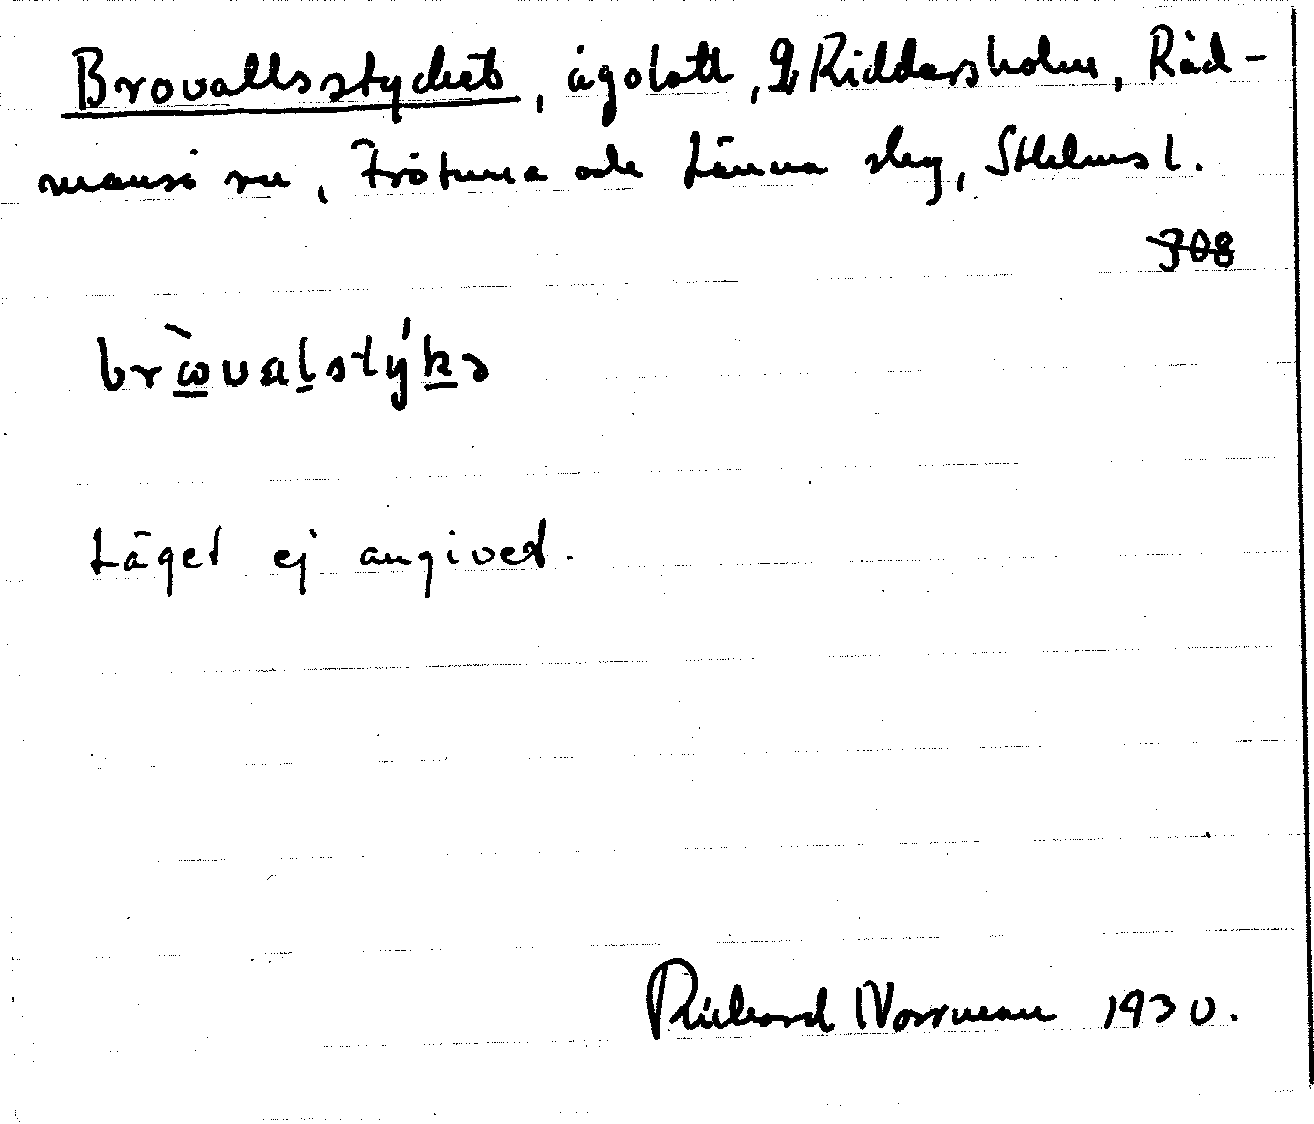 Brovallsstycket, ägolott, g Riddersholm, Råd-
mansö sn, Frötuna och Länna slg, Sthlms l.
308
brωvalstýkə
Läget ej angivet.
Rickard Norrman 1930.